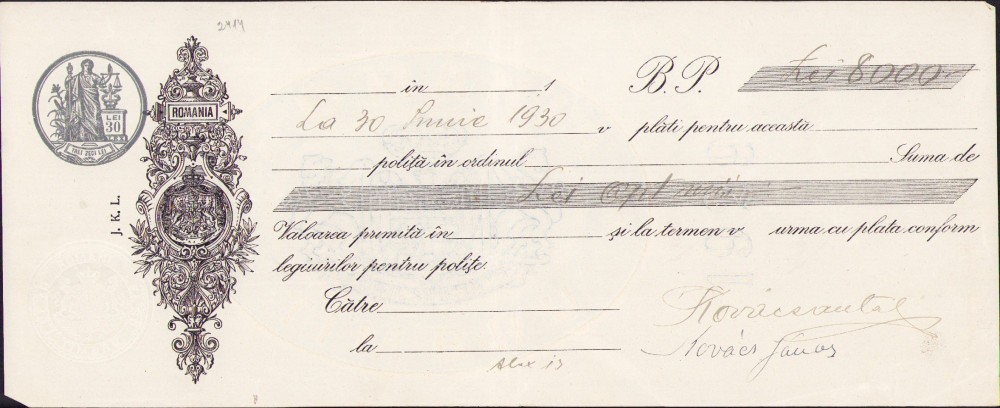 2414
în 1 B. P. Lei 8000
LEI
30
TREI ZECI LEI
ROMANIA
La 30 Iunie 1930 v plăti pentru această
poliță în ordinul Suma de
Lei opt mii
J. K. L.
Valoarea primită în și la termen v urma cu plata conform
leguirilor pentru polițe.
Către
Kovács Antal
la
Kovács János